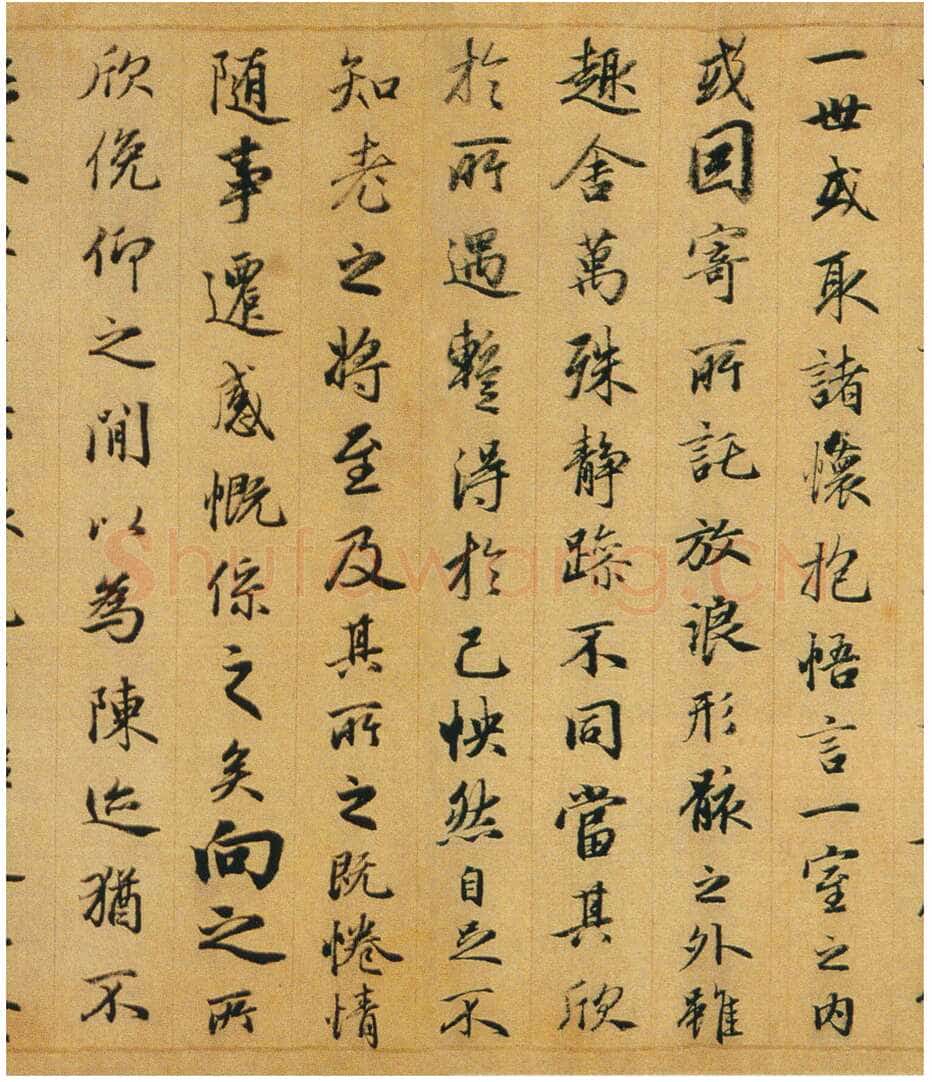 一世或取諸懷抱悟言一室之內
或因寄所託放浪形骸之外雖
趣舍萬殊靜躁不同當其欣
於所遇暫得於己怏然自足不
知老之將至及其所之既惓情
隨事遷感慨係之矣向之所
欣俛仰之閒以為陳迹猶不
shufawang.cn